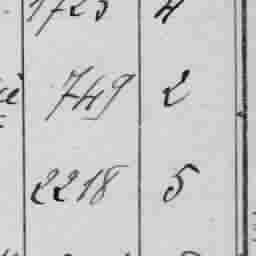 1725 4
749 2
2218 5